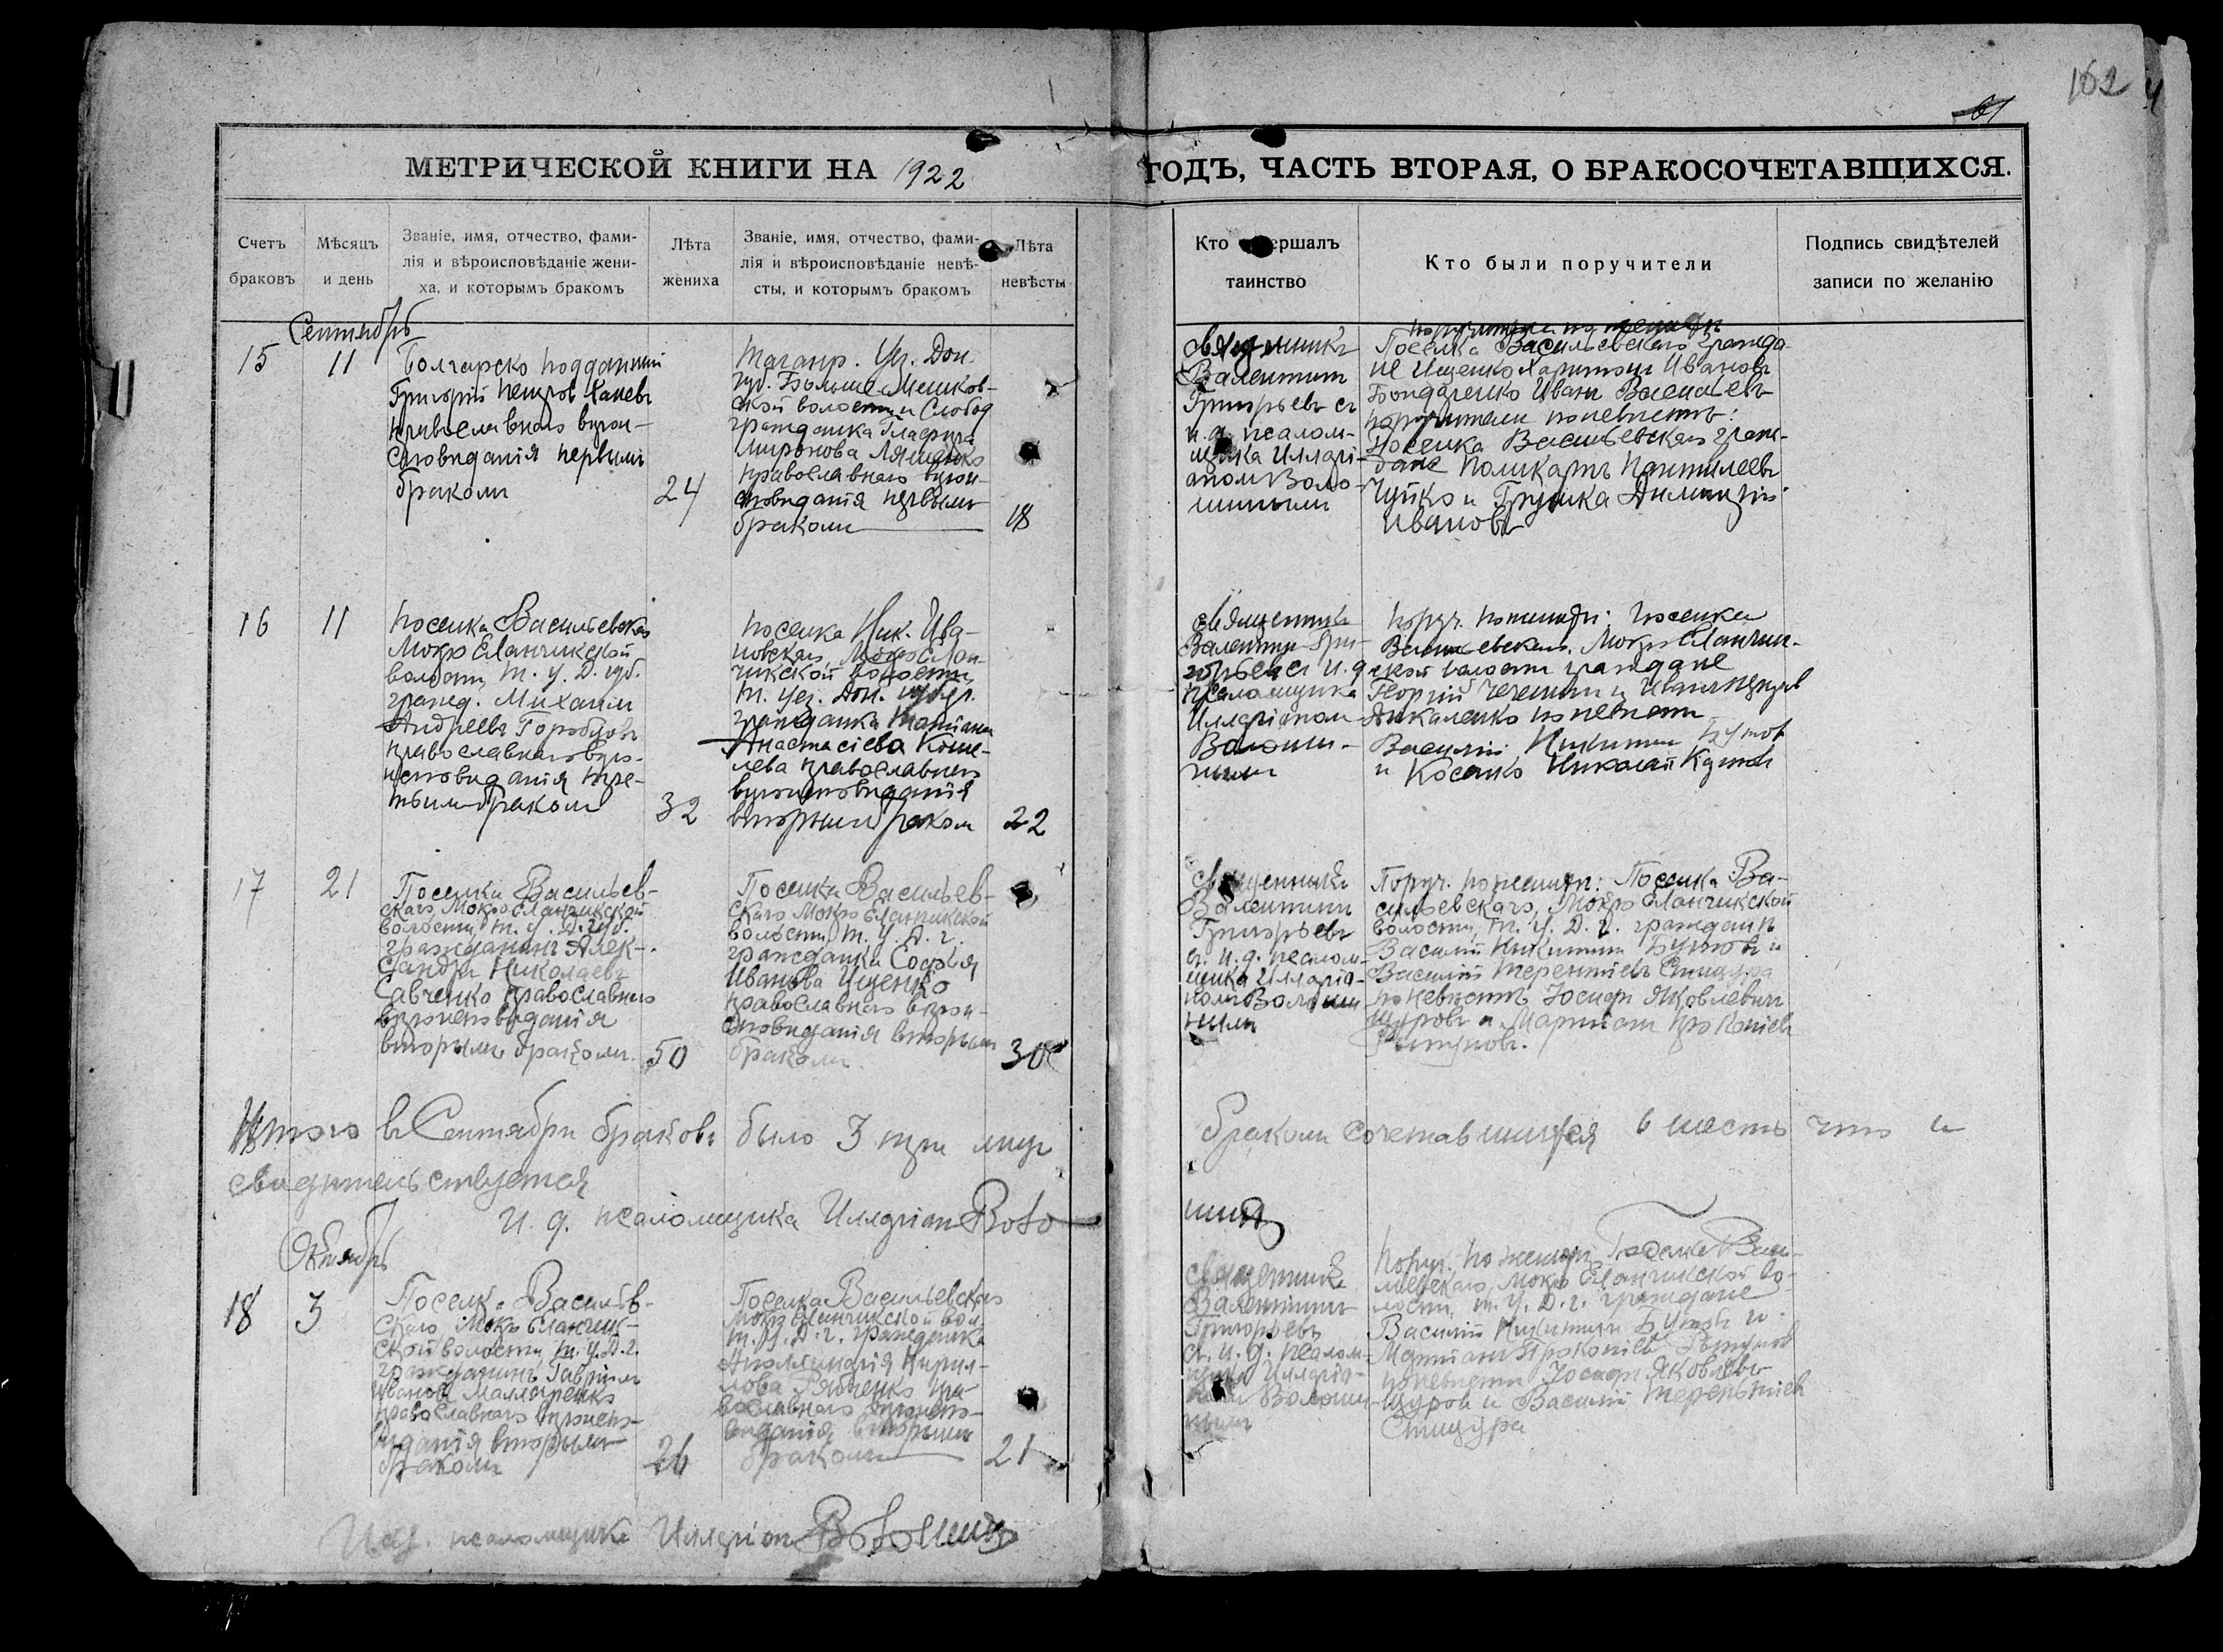 162
61
МЕТРИЧЕСКОЙ КНИГИ НА 1922
ГОДЪ, ЧАСТЬ ВТОРАЯ, О БРАКОСОЧЕТАВШИХСЯ.
Счетъ
браковъ
Мѣсяцъ
и день
Званіе, имя, отчество, фами-
лія и вѣроисповѣданіе жени-
ха, и которымъ бракомъ
Лѣта
жениха
Званіе, имя, отчество, фами-
лія и вѣроисповѣданіе невѣ-
сты, и которымъ бракомъ
Лѣта
невѣсты
Кто ершалъ
таинство
Кто были поручители
Подпись свидѣтелей
записи по желанію
Сентябрь
15
11
Болгарско подданный
Григорій Петров
православнаго вѣрои-
сповѣданія первымъ
бракомъ
24
Таганр. Уѣз. Дон.
губ. Больше-Мешков-
ской волости Слобод
гражданка Глафира
Миронова Ляшенко
православнаго вѣрои-
сповѣданія первымъ
бракомъ
18
Священникъ
Валентинъ
Григорьевъ съ
и.д. псалом-
щика Илларі-
ономъ Воло-
шинымъ
поручители по женихѣ
Поселка Васильевскаго гражда-
не Ищенко Харитонъ Ивановъ
Бондаренко Иванъ Васильевъ
поручители по невѣстѣ:
Поселка Васильевскаго граж-
дане Поликарпъ Пантилеевъ
Чуйко и Димитрій
Ивановъ
16
11
поселка Васильевскаго
Мокро Еланчикской
волости, Т. У. Д. губ.
гражд. Михаилъ
Андреевъ Горобцовъ
православнаго вѣро-
исповѣданія тре-
тьимъ бракомъ
32
поселка Ник. Ива-
новскаго, Мокро Елан-
чикской волости,
Т. Уѣз. Дон. губер.
гражданка Татіана
Анастасіева Коше-
лева православнаго
вѣроисповѣданія
вторымъ бракомъ
22
Священникъ
Валентинъ Гри-
горьевъ съ и.д.
псаломщика
Илларіономъ
Волоши-
нымъ
поруч. по женихѣ: поселка
Васильевскаго, Мокро Еланчик-
ской волости граждане
и Иванъ Петровъ
по невѣстѣ
Василій Никитинъ Бутов
и Косенко Николай
17
21
Поселка Васильев-
скаго, Мокро Еланчикской
волости, Т. У. Д. губ.
гражданинъ Алек-
сандръ Николаевъ
Савченко православнаго
вѣроисповѣданія
вторымъ бракомъ.
50
Поселка Васильев-
скаго Мокро Еланчикской
волости, Т. У. Д. г.
гражданка Софья
Иванова Ищенко
православнаго вѣрои-
сповѣданія вторымъ
бракомъ.
30
Священникъ
Валентинъ
Григорьевъ
съ и.д. псалом-
щика Илларіо-
номъ Волоши-
нымъ
Поруч. по женихѣ: Поселка Ва-
сильевскаго, Мокро Еланчикской
волости, Т. У. Д. г. граждане
Василій Никитинъ Бутовъ и
Василій Терентіевъ Стицура
по невѣстѣ Іосифъ Яковлевичъ
Щуровъ и Мартіанъ Прокопіевъ
Итого въ Сентябрѣ браковъ было 3 три лицъ
бракомъ сочетавшихся 6 шесть что и
свидѣтельствуется
И. д. псаломщика Илларіон Воло-
шинъ
Октябрь
18
3
Поселка Васильев-
скаго, Мокро Еланчик-
ской волости, Т. У. Д. г.
гражданинъ Гавріилъ
Ивановъ Маляренко
православнаго вѣроиспо-
вѣданія вторымъ
бракомъ
26
Поселка Васильевскаго
Мокро Еланчикской вол.
Т. У. Д. г. гражданка
Аполлинарія Кирил-
лова Рябченко пра-
вославнаго вѣроиспо-
вѣданія вторымъ
бракомъ
21
Священникъ
Валентинъ
Григорьевъ
съ и.д. псалом-
щика Илларіо-
номъ Волоши-
нымъ
Поруч. по женихѣ Поселка Васи-
льевскаго, Мокро Еланчикской во-
лости, Т. У. Д. г. граждане
Василій Никитинъ Бутовъ и
Мартіанъ Прокопіевъ
по невѣстѣ Іосифъ Яковлевъ
Щуров и Василій Терентіевъ
Стицура
И.д. псаломщика Илларіон Волошинъ